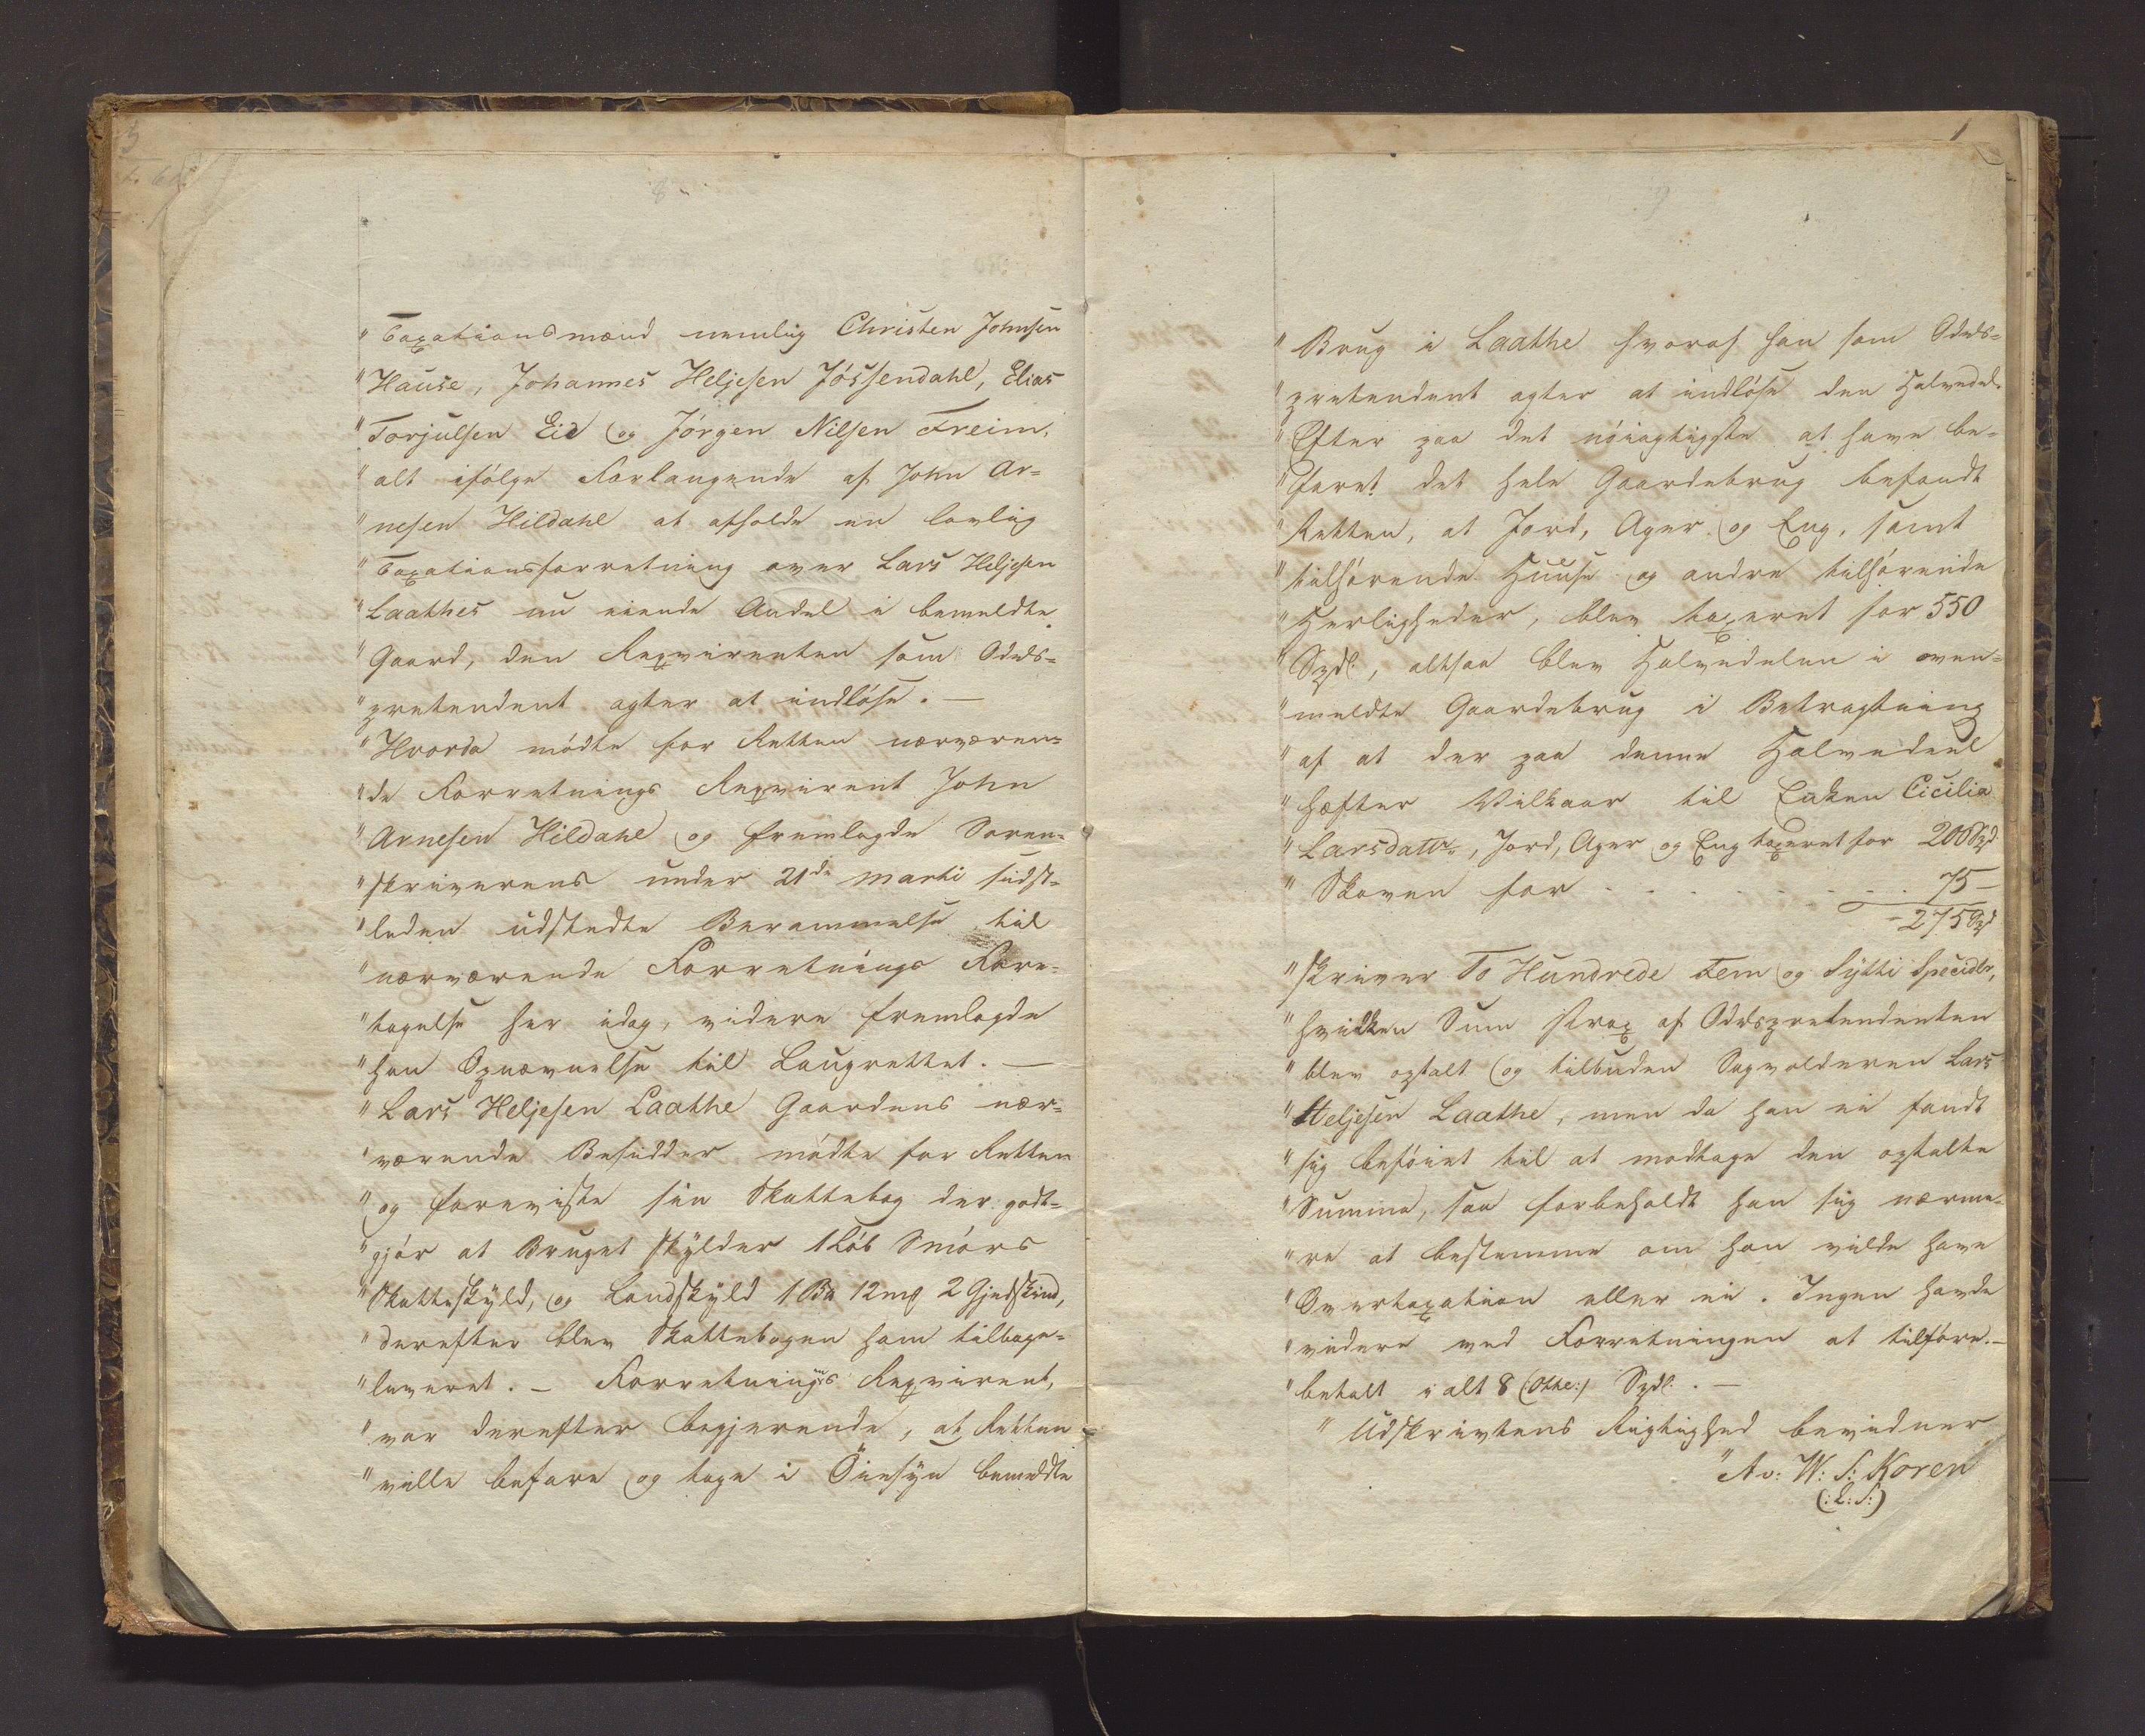 8
"Taxationsmænd nemlig Christen Johnsen
"Hause, Johannes Heljesen Jössendahl, Elias
"Torjulsen Eid og Jörgen Nilsen Freim,
"alt ifölge Forlangende af John Ar=
"nesen Hildahl at afholde en lovlig
"Taxationsforretning over Lars Heljesen
"Laathes nu eiende Andel i bemeldte
"Gaard, den Reqvirenten som Odels=
"pretendent agter at indlöse. —
"Hvorda mödte for Retten nærværen=
"de Forretnings Reqvirent John
"Arnesen Hildahl og fremlagde Soren=
"skriverens under 21de Marti sidst=
"leden udstedte Berammelse til
"nærværende Forretnings Fore=
"tagelse her idag, videre fremlagde
"han Opnævnelse til Laugrettet. —
"Lars Heljesen Laathe Gaardens nær=
"værende Besidder mödte for Retten
"og foreviste sin Skattebog der godt=
"gjör at Bruget skylder 1 Löb Smörs
"Skatteskyld, og Landskyld 1 Bp 12 mg 2 Gjedskind,
"derefter blev Skattebogen ham tilbage=
"leveret. — Forretnings Reqvirent,
"var derefter begjerende, at Retten
"ville befare og tage i Öiesyn bemeldte
"Brug i Laathe hvoraf han som Odels=
"pretendent agter at indlöse den Halvedel.
"Efter paa det nöiagtigste at have be=
"faret det hele Gaardebrug befandt
"Retten, at Jord, Ager og Eng, samt
"tilhörende Huuse og andre tilhörende
"Herligheder, blev taxeret for 550
"Spdl., altsaa blev Halvedelen i oven=
"meldte Gaardebrug i Betragtning
"af at der paa denne Halvedeel
"hæfter Vilkaar til Enken Cicilia
"Larsdattr., Jord, Ager og Eng taxeret for 200 Spd
"Skoven for . . . . . . . . 75 —
- 275 Spd
"skriver To Hundrede Fem og Sytti Specidlr,
"hvilken Sum strax af Odelspretendenten
"blev optalt og tilbuden Sagvolderen Lars
"Heljesen Laathe, men da han ei fandt
"sig beföiet til at modtage den optalte
"Summa, saa forbeholdt han sig nærme=
"re at bestemme om han vilde have
"Overtaxation eller ei. Ingen havde
"videre ved Forretningen at tilföre. —
"betalt i alt 8 (:Otte:) Spdl. —
"Udskrivtens Rigtighed bevidner
"Av: W: S: Koren
(:L:S:)